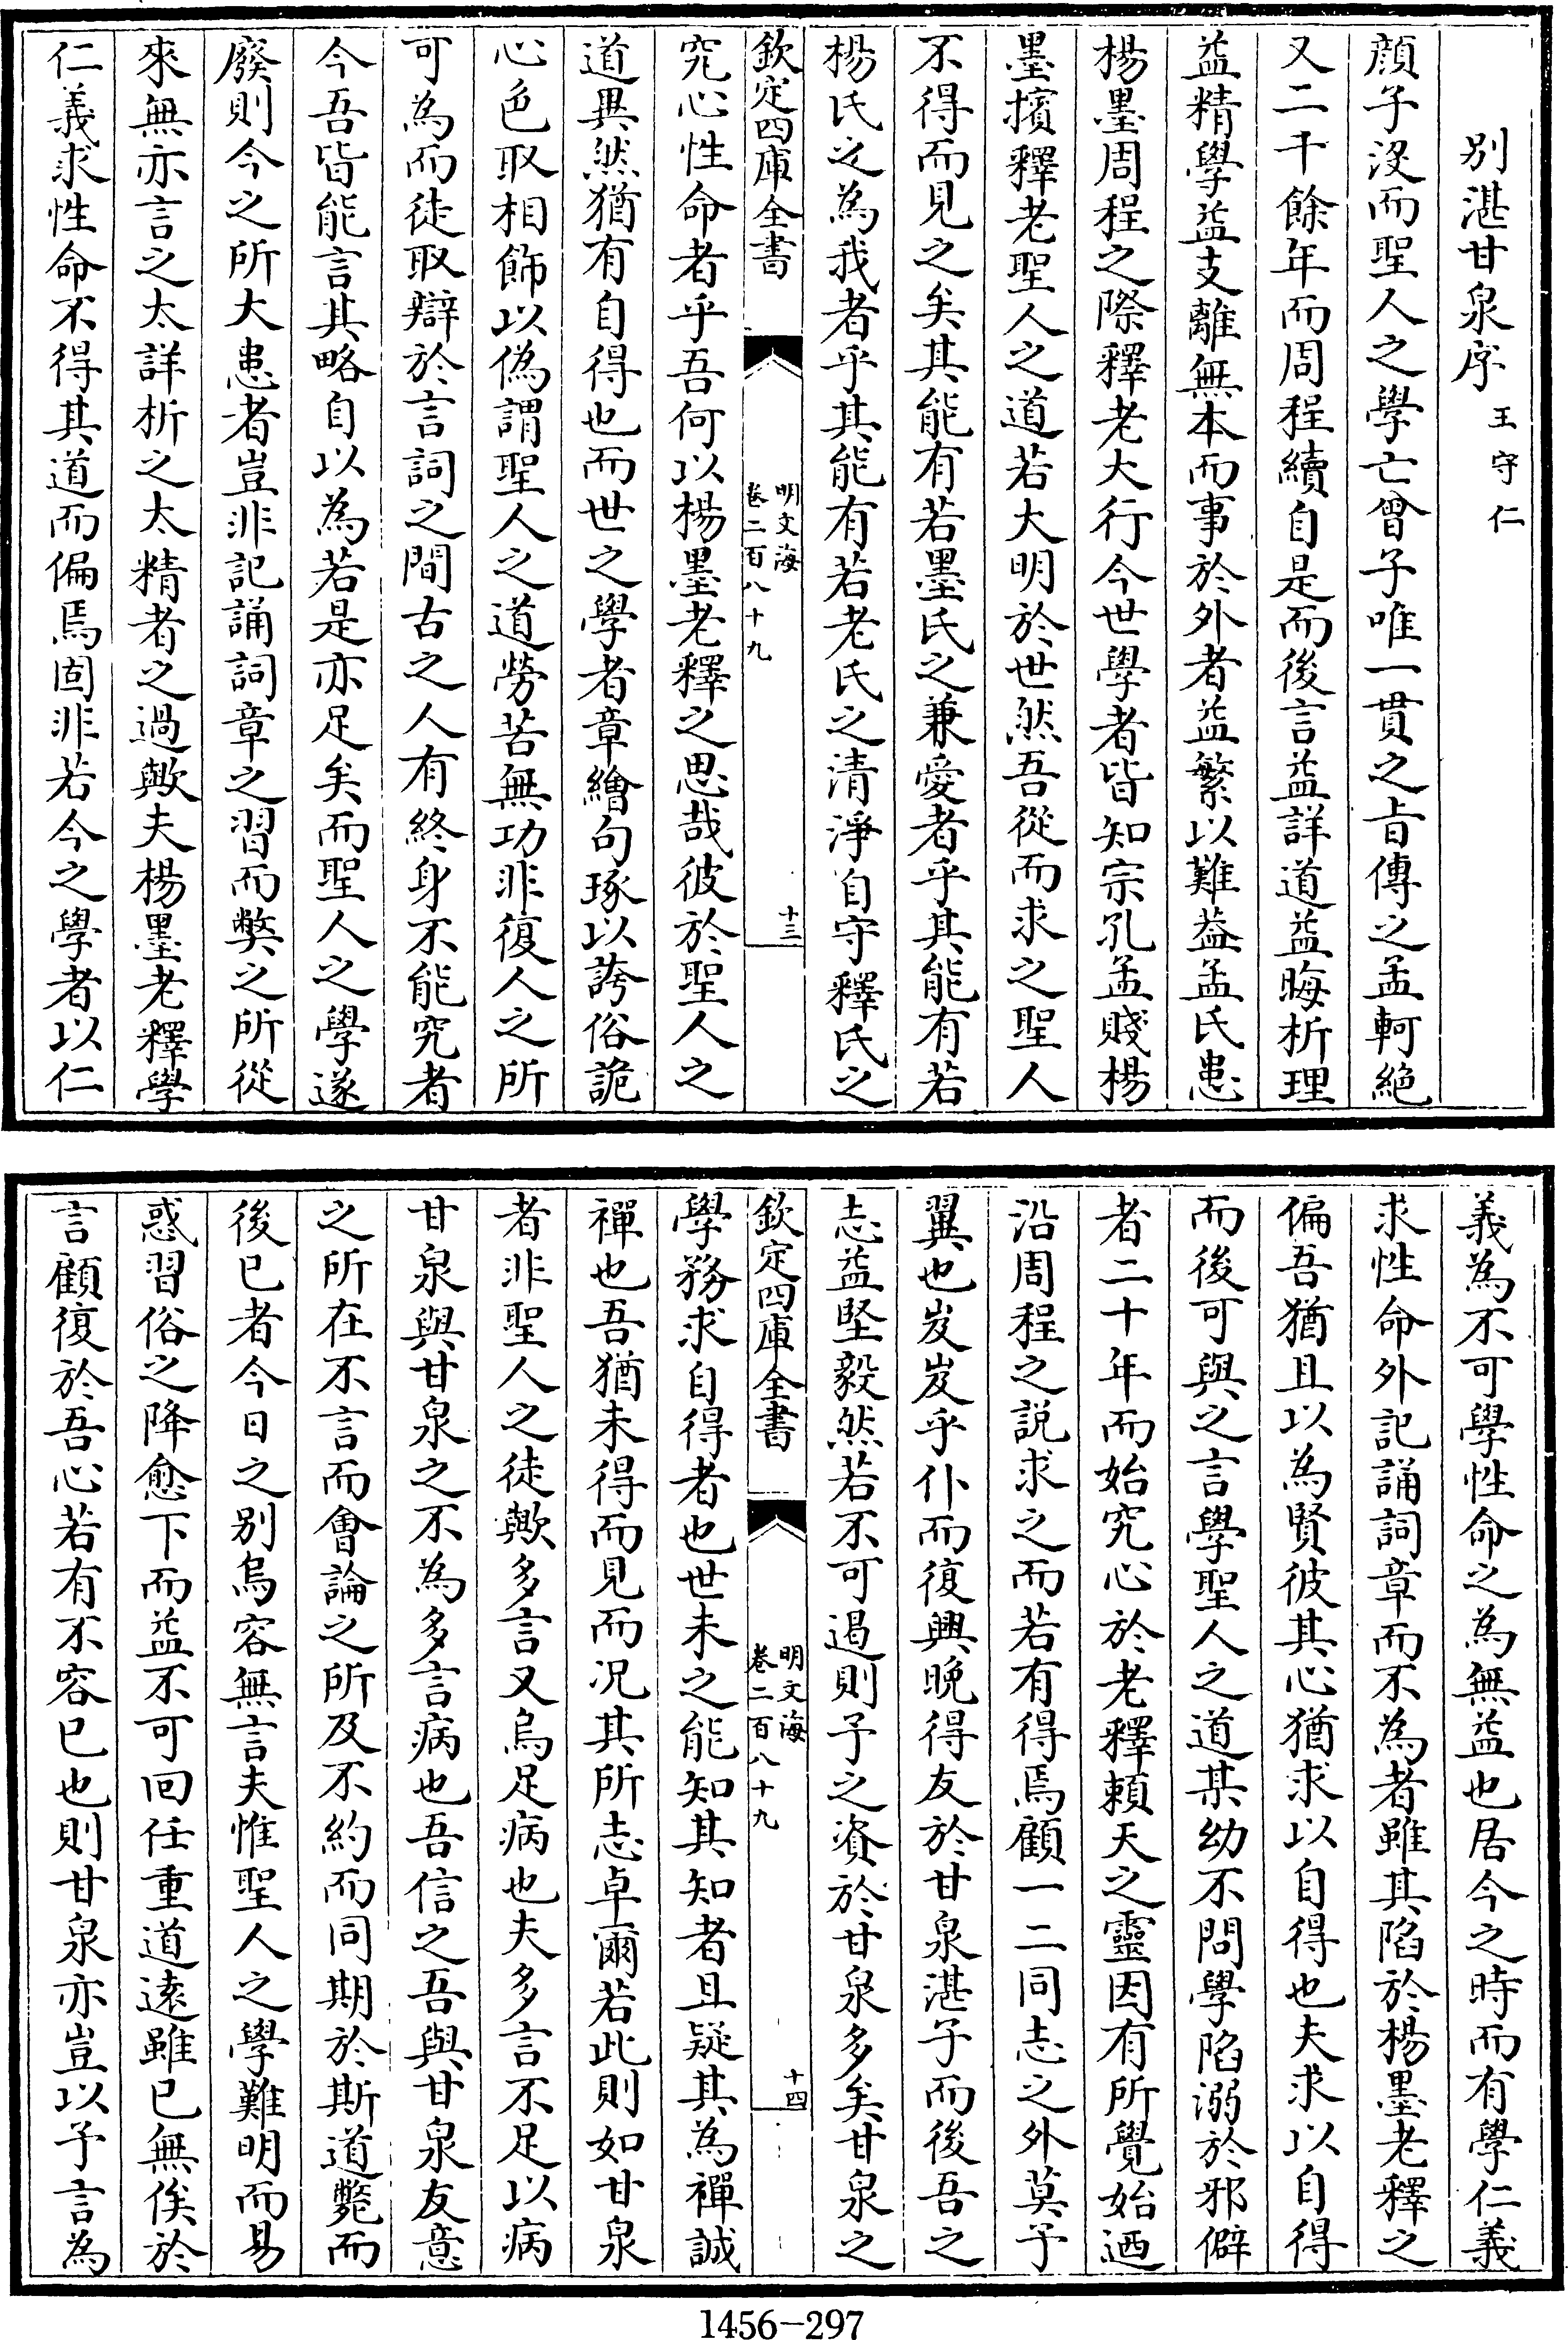 別湛甘泉序 王守仁
顔子没而聖人之學亡曾子唯一貫之旨傳之孟軻絶
又二千餘年而周程續自是而後言益詳道益晦析理
益精學益支離無本而事於外者益繁以難葢孟氏患
楊墨周程之際釋老大行今世學者皆知宗孔孟賤楊
墨擯釋老聖人之道若大明於世然吾從而求之聖人
不得而見之矣其能有若墨氏之兼愛者乎其能有若
楊氏之為我者乎其能有若老氏之清淨自守釋氏之
欽定四庫全書
明文海
卷二百八十九
十三
究心性命者乎吾何以楊墨老釋之思哉彼於聖人之
道異然猶有自得也而世之學者章繪句琢以誇俗詭
心色取相飾以偽謂聖人之道勞苦無功非復人之所
可為而徒取辯於言詞之間古之人有終身不能究者
今吾皆能言其略自以為若是亦足矣而聖人之學遂
廢則今之所大患者豈非記誦詞章之習而弊之所從
來無亦言之太詳析之太精者之過歟夫楊墨老釋學
仁義求性命不得其道而偏焉固非若今之學者以仁
義為不可學性命之為無益也居今之時而有學仁義
求性命外記誦詞章而不為者雖其陷於楊墨老釋之
偏吾猶且以為賢彼其心猶求以自得也夫求以自得
而後可與之言學聖人之道某幼不問學陷溺於邪僻
者二十年而始究心於老釋頼天之靈因有所覺始迺
沿周程之説求之而若有得焉顧一二同志之外莫予
翼也岌岌乎仆而復興晚得友於甘泉湛子而後吾之
志益堅毅然若不可遏則予之資於甘泉多矣甘泉之
欽定四庫全書
明文海
卷二百八十九
十四
學務求自得者也世未之能知其知者且疑其為禪誠
禪也吾猶未得而見而况其所志卓爾若此則如甘泉
者非聖人之徒歟多言又烏足病也夫多言不足以病
甘泉與甘泉之不為多言病也吾信之吾與甘泉友意
之所在不言而會論之所及不約而同期於斯道斃而
後已者今日之別烏容無言夫惟聖人之學難明而易
惑習俗之降愈下而益不可回任重道遠雖已無俟於
言顧復於吾心若有不容已也則甘泉亦豈以予言為
1456-297